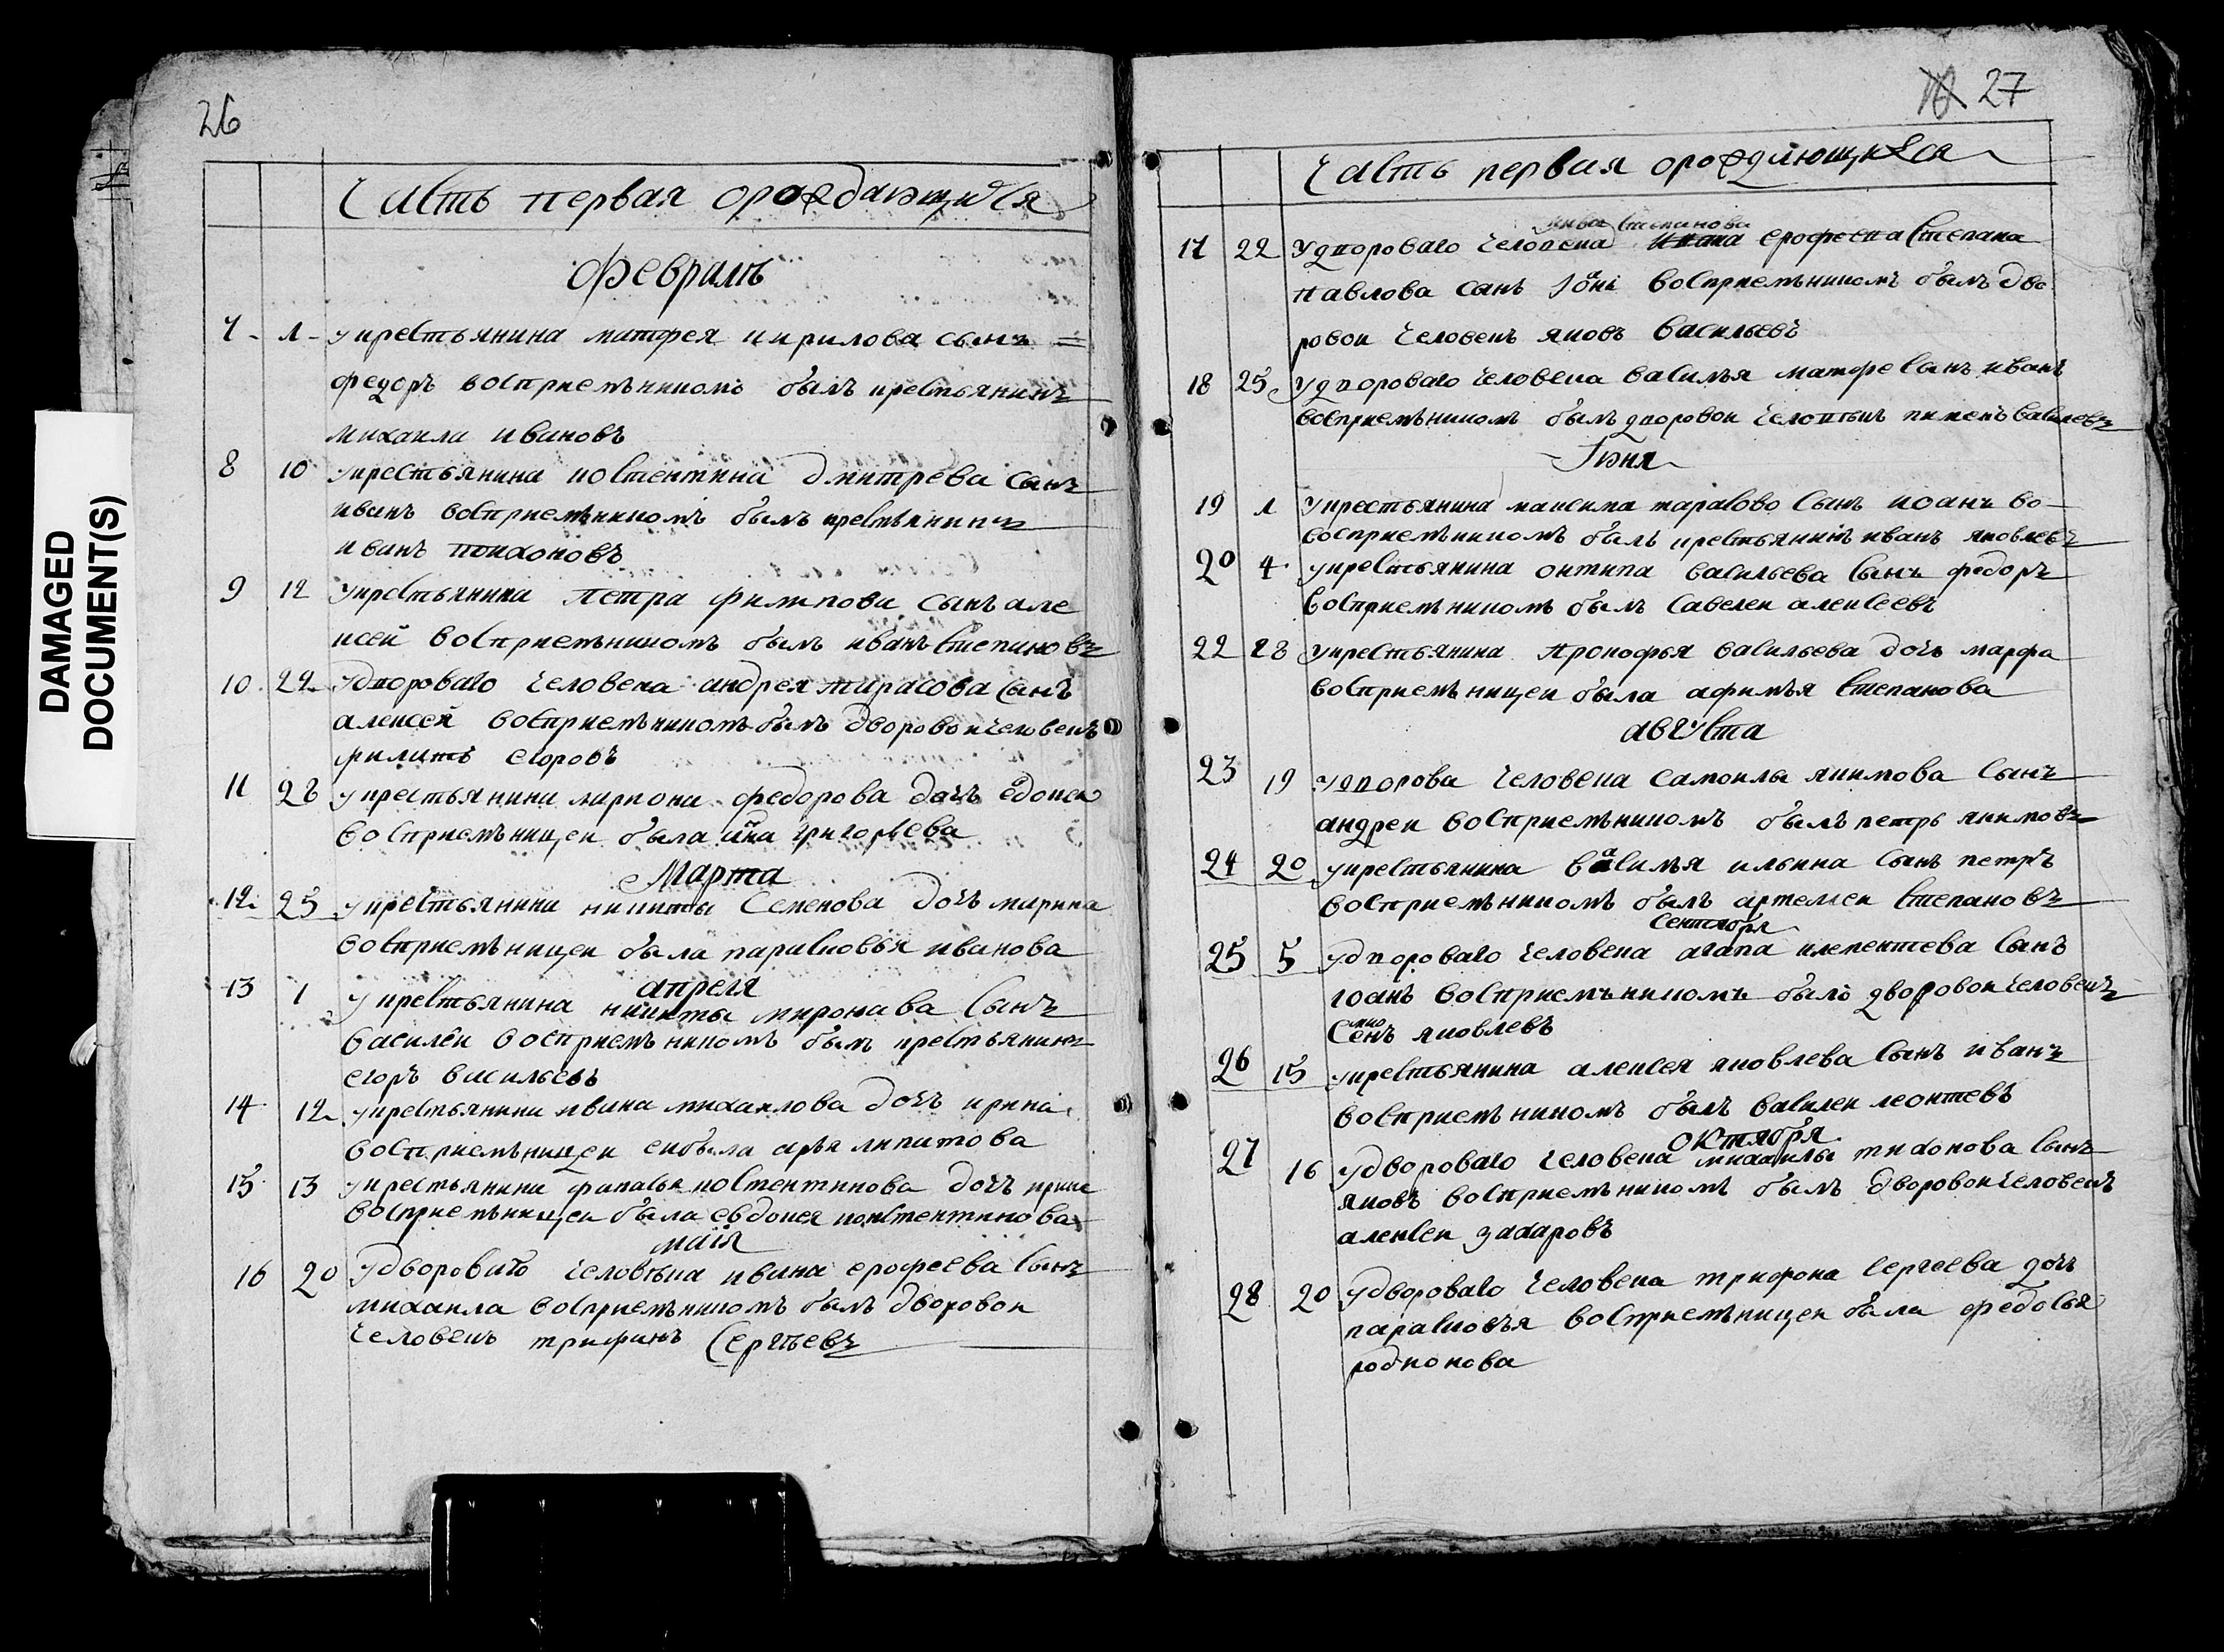 DAMAGED
DOCUMENT(S)
26
Часть первая ораждающихся
Февраль
7 - 1 - у крестьянина матфея кирилова сынъ
федоръ восприемъникомъ былъ крестьянинъ
михаила ивановъ
8 10 у крестьянина костентина дмитрева сынъ
иванъ восприемъникомъ былъ крестьянинъ
иванъ тихоновъ
9 12 у крестьянина петра филипова сынъ але
ксей восприемъникомъ былъ иванъ степановъ
10 22 У двороваго человека андрея тарасова сынъ
алексей восприемъникомъ былъ дворовои человекъ
филипъ егоровъ
11 28 у крестьянина лариона федорова дочь
восприемъницеи была григорьева
Марта
12 25 у крестьянина никиты семенова дочь марина
восприемъницеи была парасковья иванова
апреля
13 1 у крестьянина никиты миронава сынъ
василеи восприемъникомъ былъ крестьянинъ
егоръ васильевъ
14 12 у крестьянина ивана михаилова дочь ирина
восприемъницеи была
15 13 у крестьянина костентинова дочь
восприемъницеи была евдокея костентинова
маія
16 20 У двороваго человека ивана ерофеева сынъ
михаила восприемъникомъ былъ дворовои
человекъ трифанъ Сергѣевъ
27
Часть первая ораждающихся
степанова
17 22 У двороваго человека ерофеева степана
павлова сынъ восприемъникомъ былъ дво
ровои человекъ яковъ васильевъ
18 25 У двороваго человека василья матфе сынъ иванъ
восприемъникомъ былъ дворовои человекъ пименъ василевъ
Іюня
19 1 У крестьянина максима тарасово сынъ иоанъ во
восприемъникомъ былъ крестьянинъ иванъ яковлевъ
20 4 у крестьянина онтипа васильева сынъ федоръ
восприемъникомъ былъ савелеи алексеевъ
22 28 у крестьянина прокофья васильева дочь марфа
восприемъницеи была афимья степанова
августа
23 19 у дворова человека самоилы якимова сынъ
андреи восприемъникомъ былъ петръ якимовъ
24 20 у крестьянина василья ильина сынъ петръ
восприемъникомъ былъ артемеи степановъ
Сентября
25 5 у двороваго человека агапа клементева сынъ
иоанъ восприемъникомъ было дворовои человекъ
мио
Сенъ яковлевъ
26 15 у крестьянина алексея яковлева сынъ иванъ
восприемъникомъ былъ василеи леонтевъ
октября
27 16 у двороваго человека михаилы тихонова сынъ
яковъ восприемъникомъ былъ дворовои человекъ
алексеи захаровъ
28 20 у двороваго человека трифона сергеева дочь
парасковья восприемъницеи была федосья
родионова